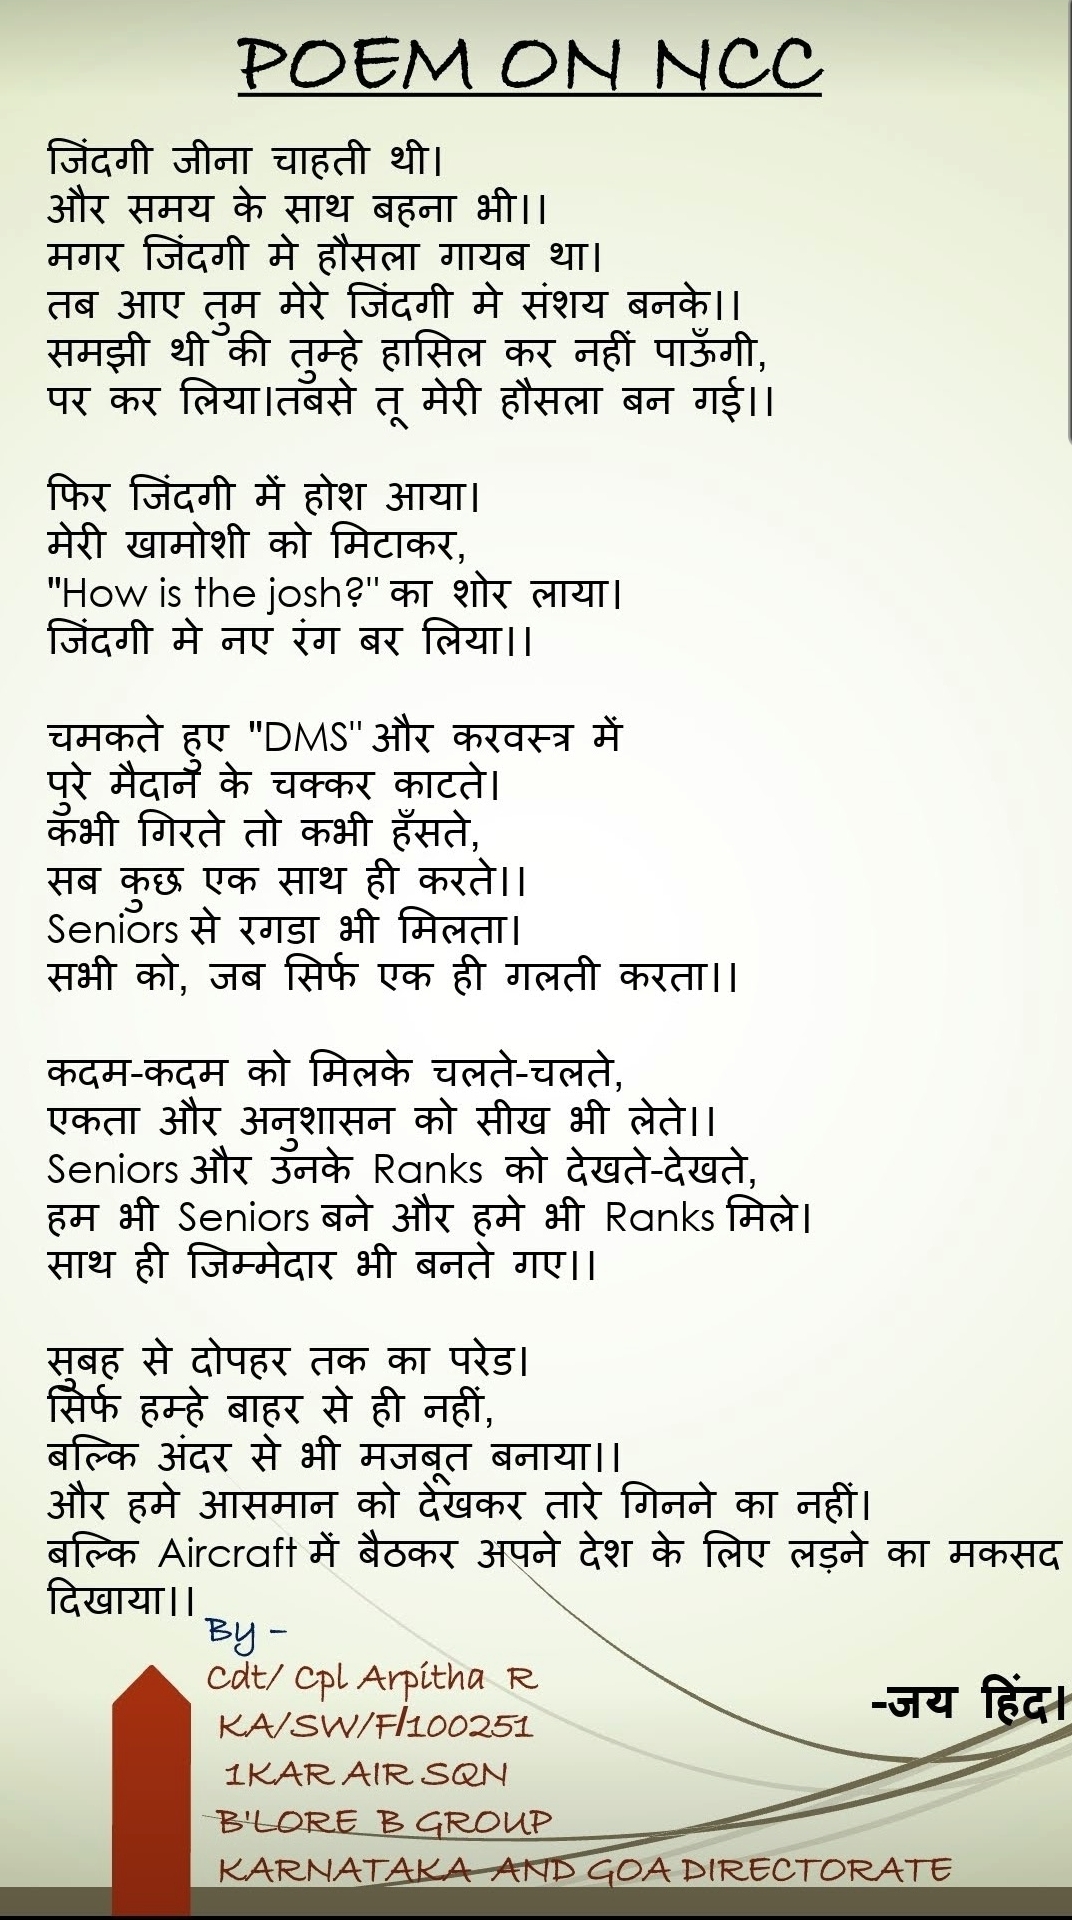 POEM ON NCC
जिंदगी जीना चाहती थी।
और समय के साथ बहना भी।।
मगर जिंदगी मे हौसला गायब था।
तब आए तुम मेरे जिंदगी मे संशय बनके।।
समझी थी की तुम्हे हासिल कर नहीं पाऊँगी,
पर कर लिया।तबसे तू मेरी हौसला बन गई।।
फिर जिंदगी में होश आया।
मेरी खामोशी को मिटाकर,
"How is the josh?" का शोर लाया।
जिंदगी मे नए रंग बर लिया।।
चमकते हुए "DMS" और करवस्त्र में
पुरे मैदान के चक्कर काटते।
कभी गिरते तो कभी हँसते,
सब कुछ एक साथ ही करते।।
Seniors से रगडा भी मिलता।
सभी को, जब सिर्फ एक ही गलती करता।।
कदम-कदम को मिलके चलते-चलते,
एकता और अनुशासन को सीख भी लेते।।
Seniors और उनके Ranks को देखते-देखते,
हम भी Seniors बने और हमे भी Ranks मिले।
साथ ही जिम्मेदार भी बनते गए।।
सुबह से दोपहर तक का परेड।
सिर्फ हम्हे बाहर से ही नहीं,
बल्कि अंदर से भी मजबूत बनाया।।
और हमे आसमान को देखकर तारे गिनने का नहीं।
बल्कि Aircraft में बैठकर अपने देश के लिए लड़ने का मकसद
दिखाया।।
By -
Cdt/ Cpl Arpitha R
KA/SW/F/100251
1KAR AIR SQN
B'LORE B GROUP
KARNATAKA AND GOA DIRECTORATE
-जय हिंद।